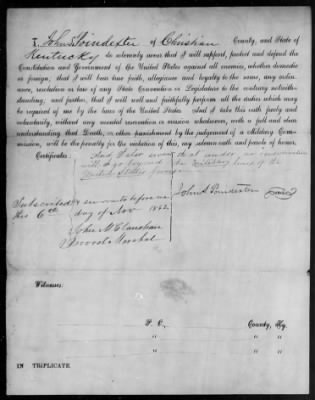 I, John S Poindexter of Christian County, and State of
Kentucky do solemnly swear that I will support, protect and defend the
Constitution and Government of the United States against all enemies, whether domestic
or foreign, that I will bear true faith, allegiance and loyalty to the same, any ordi-
nance, resolution or law of any State Convention or Legislature to the contrary notwith-
standing, and further, that I will well and faithfully perform all the duties which may
be required of me by the laws of the United States. And I take this oath freely and
voluntarily, without any mental reservation or evasion whatsoever, with a full and clear
understanding that Death, or other punishment by the judgement of a Military Com-
mission, will be the penalty for the violation of this, my solemn oath and parole of honor.
Certificate:
And I also swear that under no
will I go beyond the Military lines of the
United States forces
John S Poindexter
Subscribed & sworn to before me
this 6th day of Nov 1862
John M Clanahan
Provost Marshal
Witnesses:
P. O. County, Ky.
" " "
" " "
IN TRIPLICATE